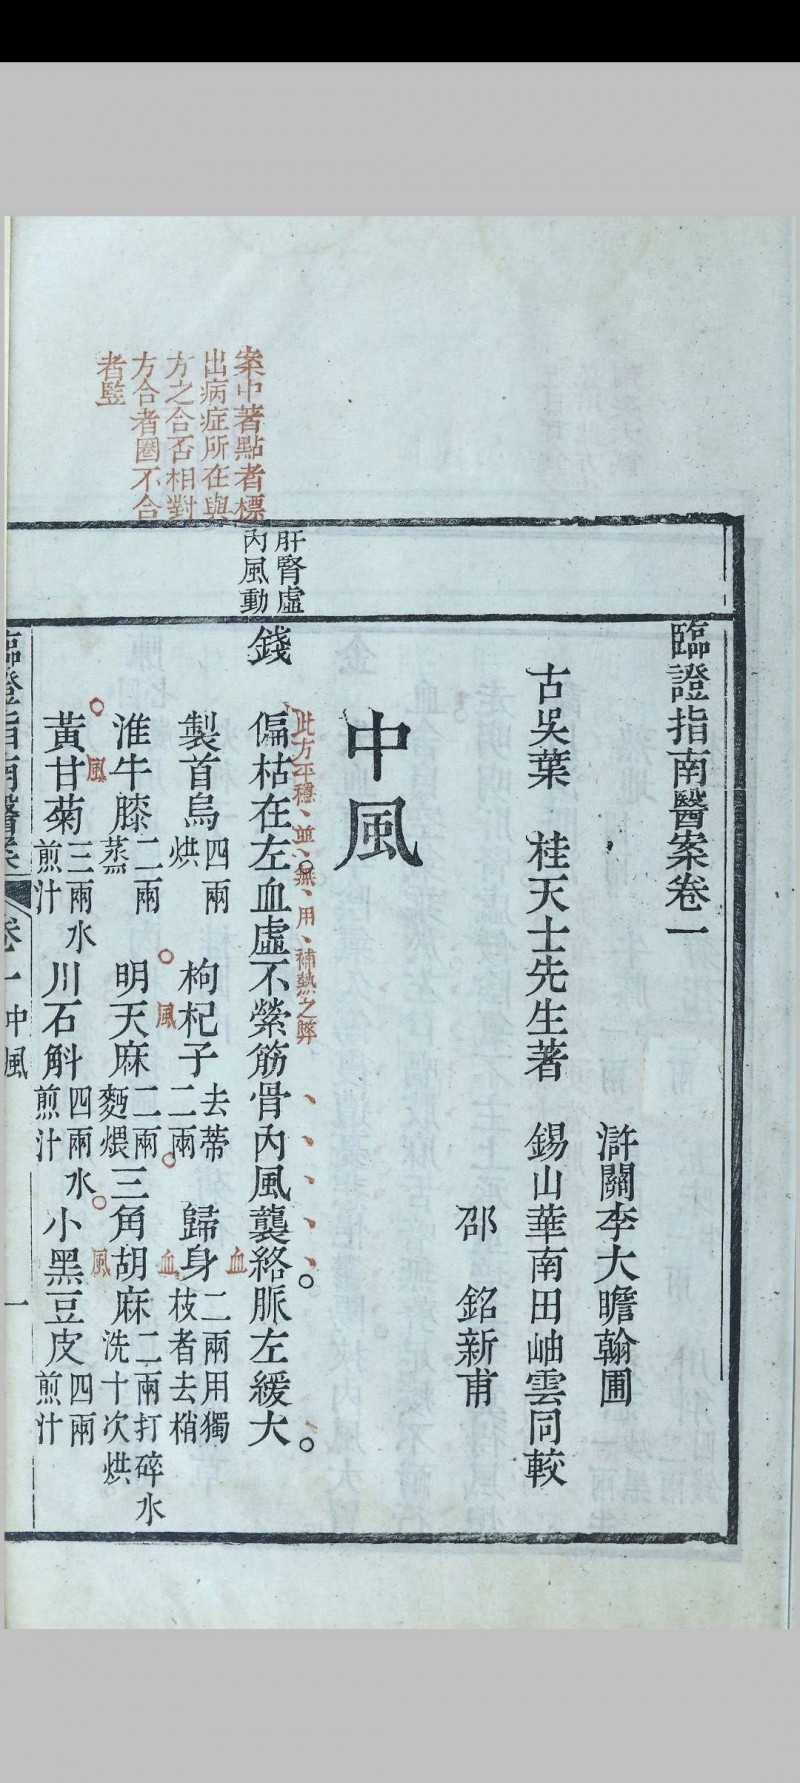 臨證指南醫案卷一
滸關李大瞻翰圃
古吳葉　桂天士先生著　錫山華南田岫雲同較
邵　銘新甫
中風
案中著點者標
出病症所在與
方之合否相對
方合者圈不合
者豎
肝腎虛
內風動
此方平穩並無用補熱之弊
錢　偏枯在左血虛不縈筋骨內風襲絡脈左緩大
血
製首烏四兩烘　枸杞子去蒂二兩　歸身二兩用獨枝者去梢
風　血
淮牛膝二兩蒸　明天麻二兩麪煨　三角胡麻二兩打碎水洗十次烘
風　風
黃甘菊三兩水煎汁　川石斛四兩水煎汁　小黑豆皮四兩煎汁
臨證指南醫案　卷一中風　一